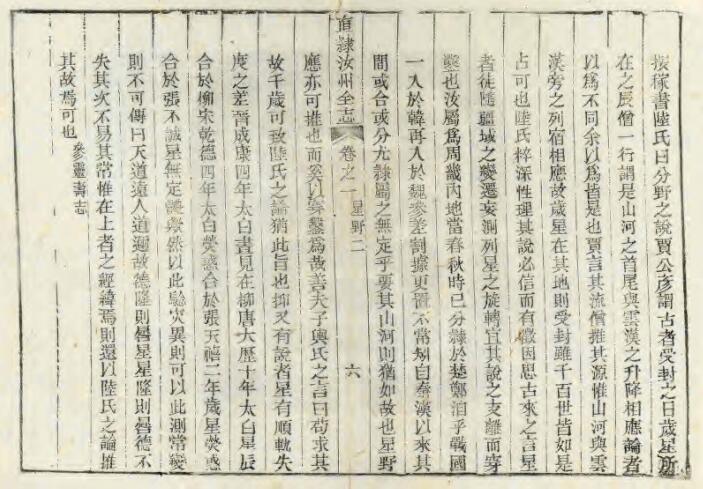 按稼書陸氏曰分野之說賈公彥謂古者受封之日歲星所
在之辰僧一行謂是山河之首尾與雲漢之升降相應論者
以爲不同余以爲皆是也賈言其流僧推其源惟山河與雲
漢旁之列宿相應故歲星在其地則受封雖千百世皆如是
占可也陸氏粹深性理其說必信而有徵因思古來之言星
者徒隨疆域之變遷妄測列星之旋轉宜其說之支離而穿
鑿也汝屬爲周畿內地當春秋時已分隸於楚鄭洎乎戰國
一入於韓再入於魏參差割據更置不常矧自秦漢以來其
間或合或分尤隸屬之無定乎要其山河則猶如故也星野
直隸汝州全志
卷之一
星野二
六
應亦可推也而奚以穿鑿爲哉善夫子輿氏之言曰苟求其
故千歲可致陸氏之論猶此旨也抑又有說者星有順軌失
度之差晉咸康四年太白晝見在柳唐大歷十年太白星辰
合於柳宋乾德四年太白熒惑合於張天禧二年歲星熒惑
合於張不誠星無定躔歟然以此驗災異則可以此測常變
則不可傳曰天道遠人道邇故德隆則晷星星隆則晷德不
失其次不易其常惟在上者之經緯焉則還以陸氏之論推
其故焉可也
參靈壽志